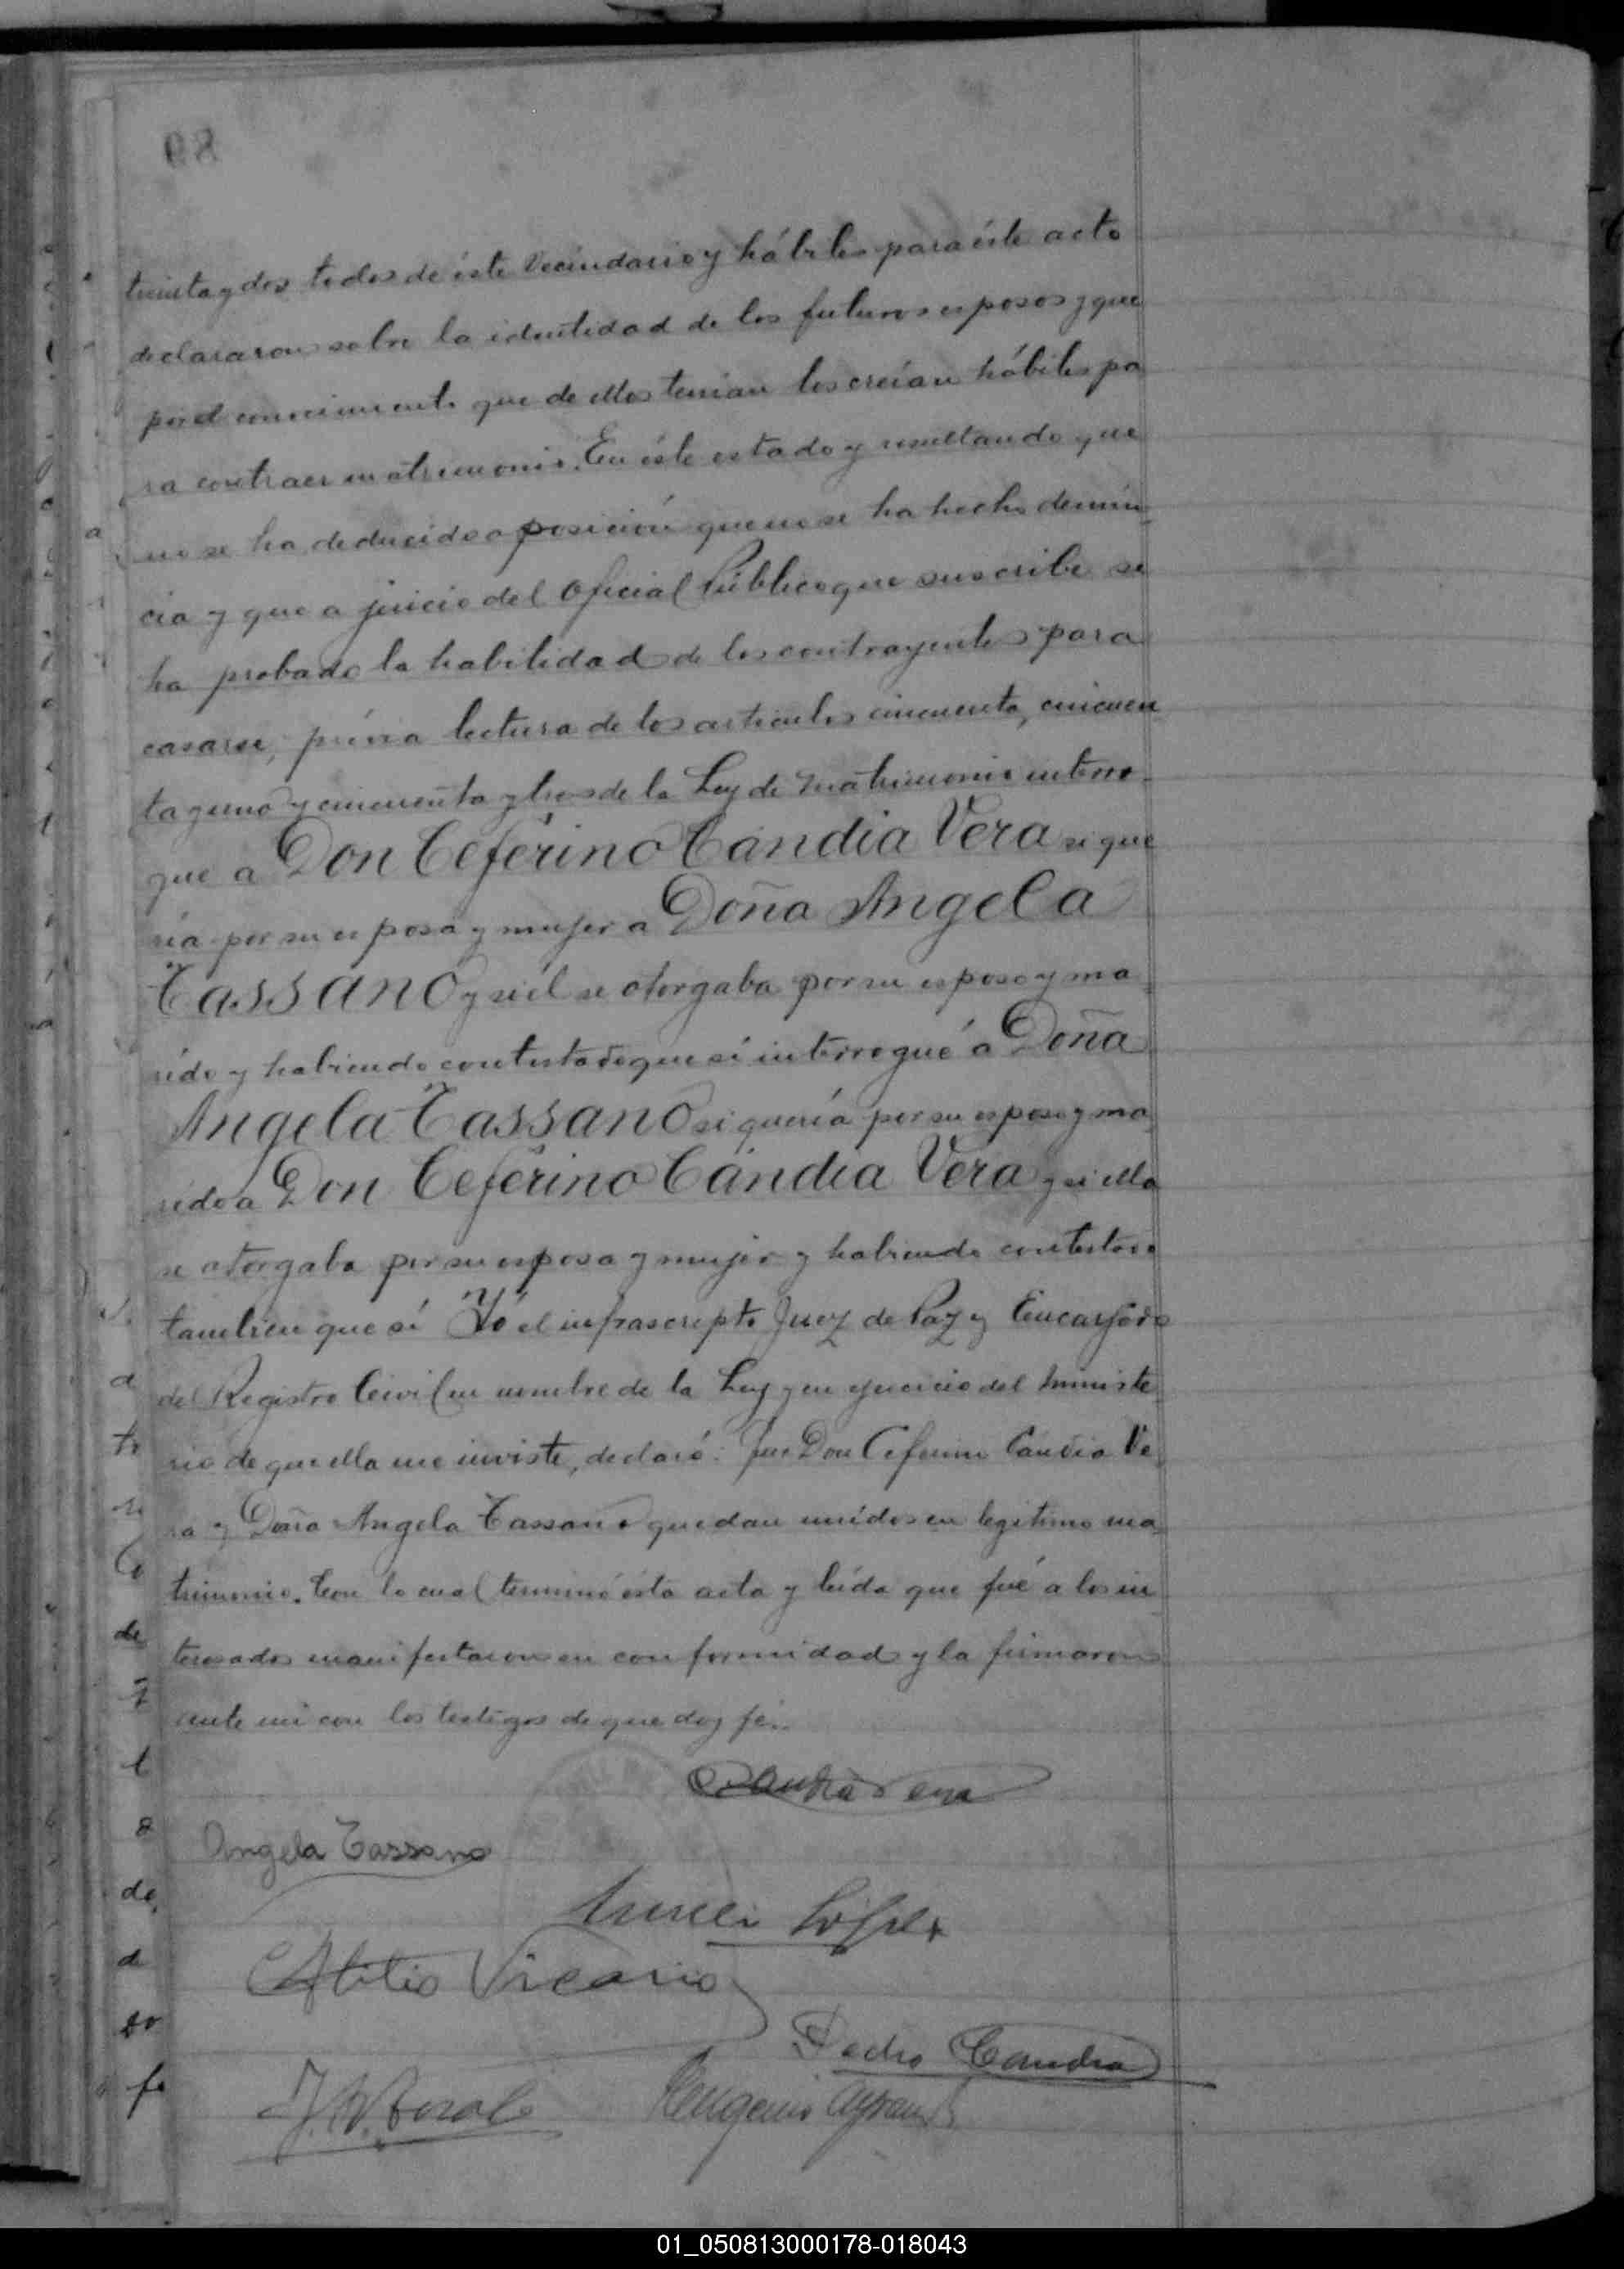 89
treinta y dos todos de éste vecindario y hábiles para éste acto
declararon sobre la identidad de los futuros esposos y que
por el conocimiento que de ellos tenian los creían hábiles pa
ra contraer matrimonio. En éste estado y resultando que
no se ha deducido oposición que no se ha hecho denún
cia y que a juicio del Oficial Público que suscribe se
ha probado la habilidad de los contrayentes para
casarse, prévia lectura de los artículos cincuenta, cincuen
ta y uno y cincuenta y tres de la Ley de Matrimonio interro
gue a Don Ceferino Cándia Vera si que
ría por su esposa y mujer a Doña Angela
Tassano y si él se otorgaba por su esposo y ma
rido y habiendo contestado que sí interrogué á Doña
Angela Tassano si quería por su esposo y ma
rido a Don Ceferino Cándia Vera y si ella
se otorgaba por su esposa y mujer y habiendo contestado
tambien que sí Yó el infrascripto Juez de Paz y Encargado
del Registro Civil en nombre de la Ley y en ejercicio del Ministe
rio de que ella me inviste, declaré: Que Don Ceferino Cándia Ve
ra y Doña Angela Tassano quedan unidos en legitimo ma
trimonio. Con lo cual terminó ésta acta y leída que fué a los in
teresados manifestaron su conformidad y la firmaron
ante mi con los testigos de que doy fé..
Candia Vera
Angela Tassano
López
Atilio Vicario
Pedro Candia
Eugenio
01_050813000178-018043